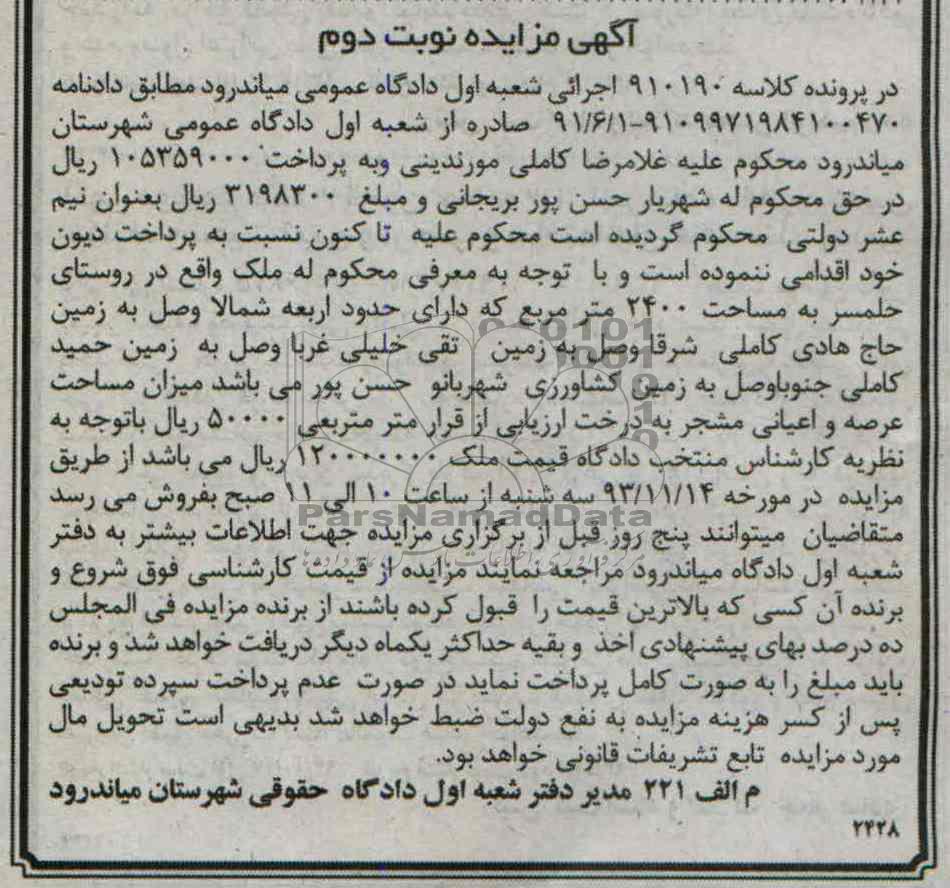 آگهی مزایده نوبت دوم
در پرونده کلاسه ۹۱۰۱۹۰ اجرائی شعبه اول دادگاه عمومی میاندرود مطابق دادنامه
۹۱۰۹۹۷۱۹۸۴۱۰۰۴۷۰-۹۱/۶/۱ صادره از شعبه اول دادگاه عمومی شهرستان
میاندرود محکوم علیه غلامرضا کاملی مورندینی وبه پرداخت ۱۰۵۳۵۹۰۰۰ ریال
در حق محکوم له شهریار حسن پور بریجانی و مبلغ ۳۱۹۸۳۰۰ ریال بعنوان نیم
عشر دولتی محکوم گردیده است محکوم علیه تا کنون نسبت به پرداخت دیون
خود اقدامی ننموده است و با توجه به معرفی محکوم له ملک واقع در روستای
حلمسر به مساحت ۲۴۰۰ متر مربع که دارای حدود اربعه شمالا وصل به زمین
حاج هادی کاملی شرقا وصل به زمین تقی خلیلی غربا وصل به زمین حمید
کاملی جنوباوصل به زمین کشاورزی شهربانو حسن پور می باشد میزان مساحت
عرصه و اعیانی مشجر به درخت ارزیابی از قرار متر متربعی ۵۰۰۰۰ ریال باتوجه به
نظریه کارشناس منتخب دادگاه قیمت ملک ۱۲۰۰۰۰۰۰۰ ریال می باشد از طریق
مزایده در مورخه ۹۳/۱۱/۱۴ سه شنبه از ساعت ۱۰ الی ۱۱ صبح بفروش می رسد
ParsNamadData
متقاضیان میتوانند پنج روز قبل از برگزاری مزایده جهت اطلاعات بیشتر به دفتر
شعبه اول دادگاه میاندرود مراجعه نمایند مزایده از قیمت کارشناسی فوق شروع و
برنده آن کسی که بالاترین قیمت را قبول کرده باشند از برنده مزایده فی المجلس
ده درصد بهای پیشنهادی اخذ و بقیه حداکثر یکماه دیگر دریافت خواهد شد و برنده
باید مبلغ را به صورت کامل پرداخت نماید در صورت عدم پرداخت سپرده تودیعی
پس از کسر هزینه مزایده به نفع دولت ضبط خواهد شد بدیهی است تحویل مال
مورد مزایده تابع تشریفات قانونی خواهد بود.
م الف ۲۲۱ مدیر دفتر شعبه اول دادگاه حقوقی شهرستان میاندرود
۲۴۲۸